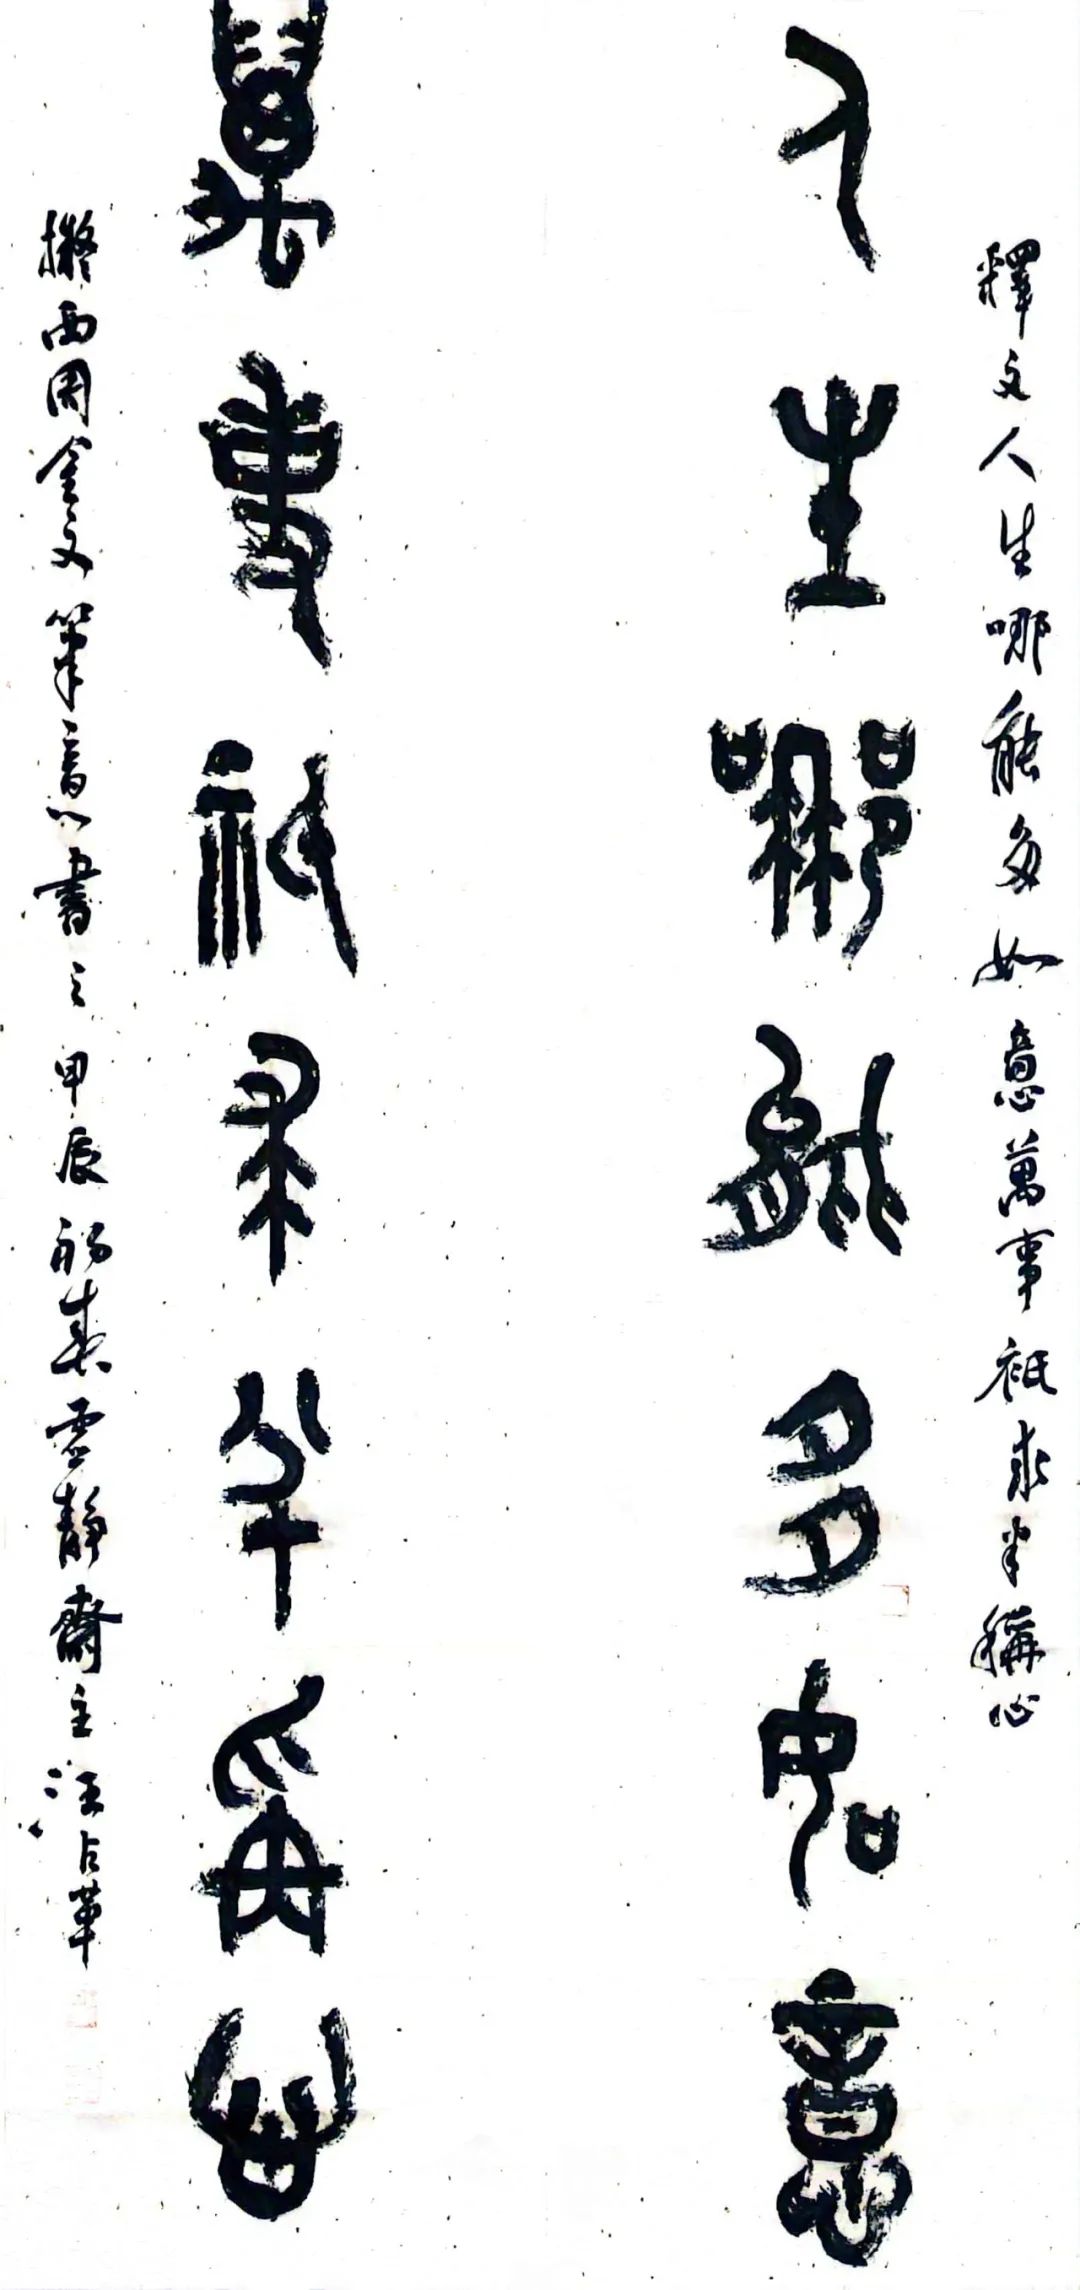 釋文人生哪能多如意萬事祇求半稱心
人生哪能多如意
萬事祇求半稱心
擬西周金文筆意書之甲辰初春虛靜齋主汪占革